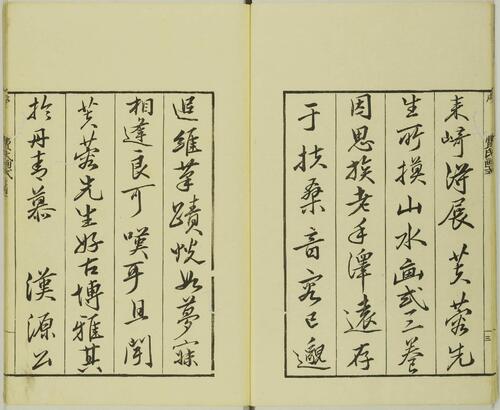 来崎得展 芙蓉先
生所摸山水画式三巻
因思族老手澤遠存
于扶桑音容已邈
追維筆蹟恍如夢寐
相逢良可嘆耳且聞
芙蓉先生好古博雅其
於丹青慕 漢源公
三